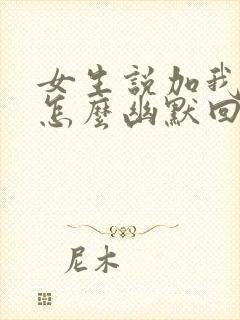 女生説加我
怎麼幽默回
尼木